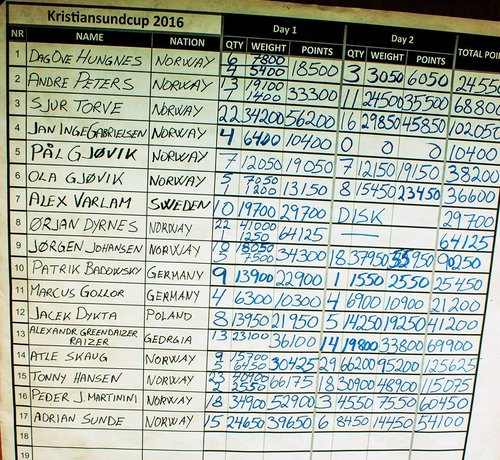 Kristiansundcup 2016 Day 1 Day 2
NR NAME NATION QTY WEIGHT POINTS QTY WEIGHT POINTS TOTAL
1 DAG OVE HUNGNES NORWAY 6 7800 5400 18500 3 3050 6050 2455
2 ANDRE PETERS NORWAY 13 19100 1400 33300 11 24500 35500 6880
3 SJUR TORVE NORWAY 22 34200 56200 16 29850 45850 102050
4 JAN INGE GABRIELSEN NORWAY 4 6400 10400 0 0 0 10400
5 PÅL GJØVIK NORWAY 7 12050 19050 7 12150 19150 38200
6 OLA GJØVIK NORWAY 5 7050 1 1200 13150 8 15450 23450 36600
7 ALEX VARLAM SWEDEN 10 19700 29700 DISK 29700
8 ØRJAN DYRNES NORWAY 22 41000 1250 64125 — 64125
9 JØRGEN JOHANSEN NORWAY 8050 5 7500 34300 18 37950 55950 90250
10 PATRIK BADOWSKY GERMANY 9 13900 22900 1 1550 2550 25450
11 MARCUS GOLLOR GERMANY 4 6300 10300 4 6900 10900 21200
12 JACEK DYKTA POLAND 8 13950 21950 5 14250 19250 41200
13 ALEXANDR GREENDAIZER RAIZER GEORGIA 13 23100 36100 14 19800 33800 69900
14 ATLE SKAUG NORWAY 9 15700 5 6450 30425 29 66200 95200 125625
15 TONNY HANSEN NORWAY 23 66175 18 30900 48900 115075
16 PEDER J. MARTININI NORWAY 18 34900 52900 3 4550 7550 60450
17 ADRIAN SUNDE NORWAY 15 24650 39650 6 8450 14450 54100
18
19